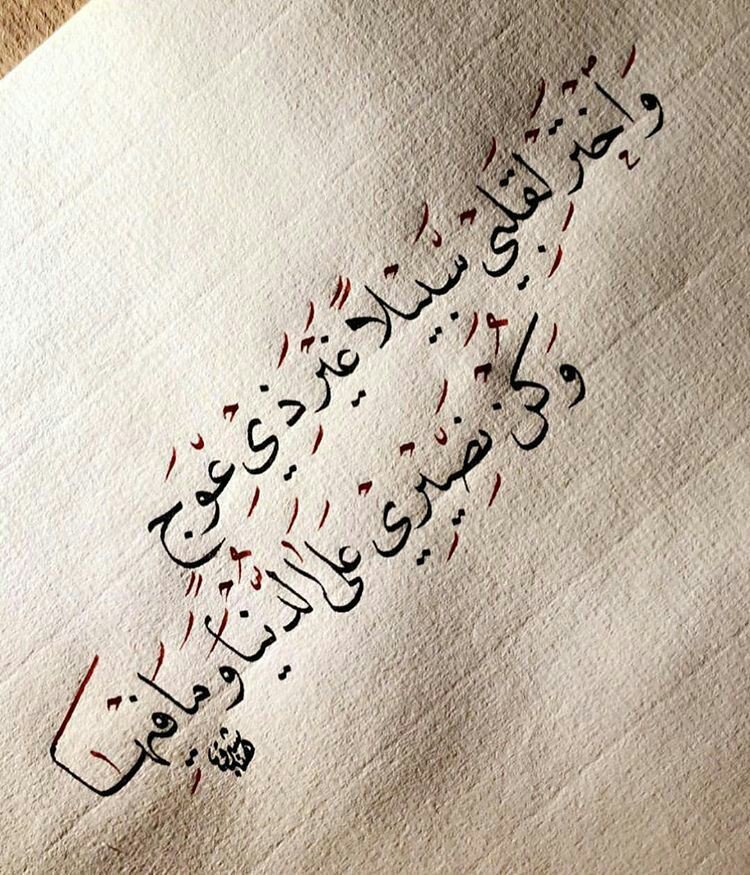 وَاخْتَرْ لِقَلْبِي سَبِيلًا غَيْرَ ذِي عِوَجٍ
وَكُنْ نَصِيرِي عَلَى الدُّنْيَا وَمَا فِيهَا